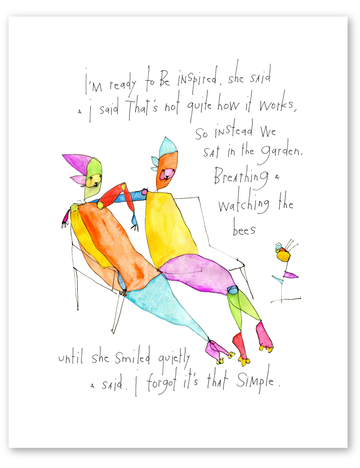 i'm ready to Be inspired, she said
& i said That's not quite how it works,
so instead we
sat in the garden.
Breathing &
watching the
bees
until she smiled quietly
& said, i forgot it's that simple.